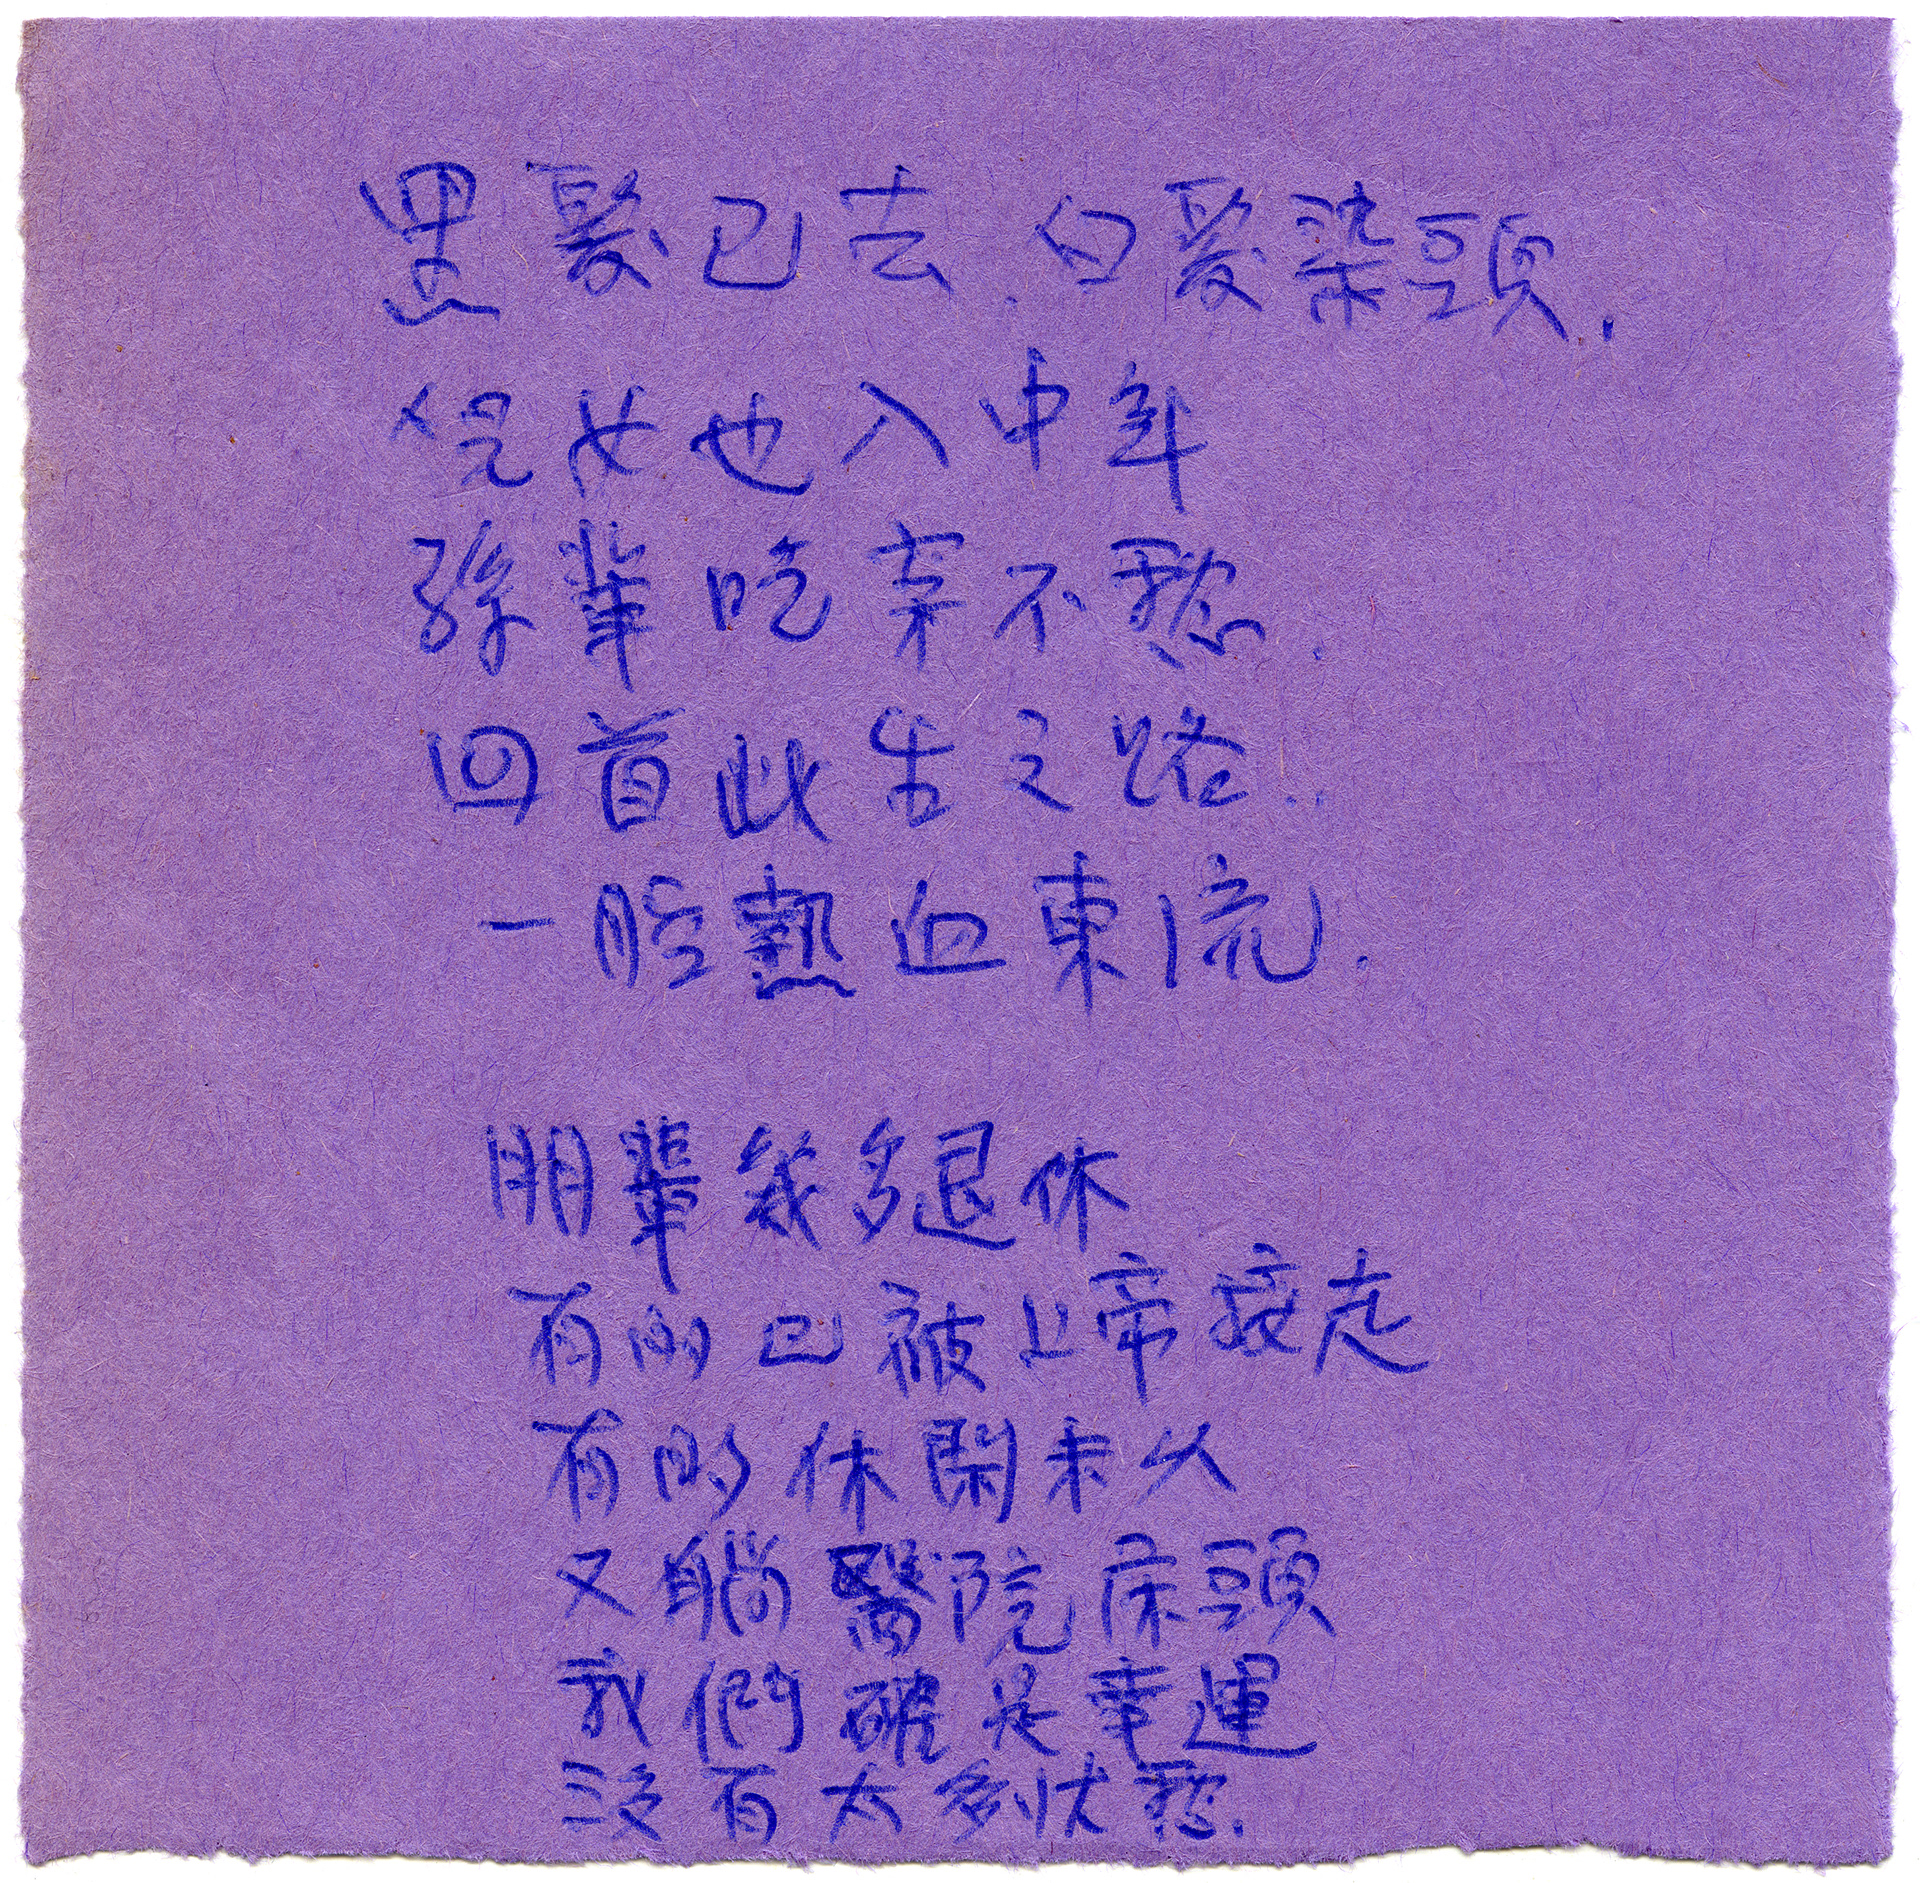 黑髮已去.白髮染頭.
兒女也入中年
孫輩吃穿不愁.
回首此生之路..
一腔熱血東流.
朋輩幾多退休
有的已被上帝接走
有的休閑未久
又躺醫院床頭
我們確是幸運
沒有太多忧愁.